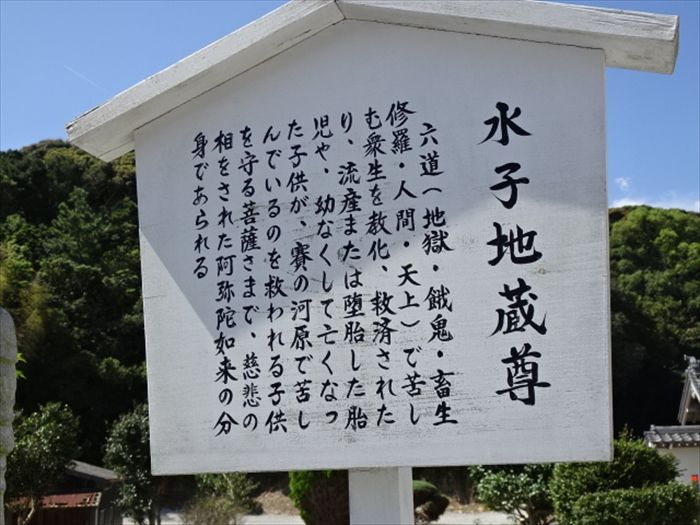 水子地蔵尊
六道(地獄・餓鬼・畜生
修羅・人間・天上)で苦し
む衆生を教化、救済された
り、流産または堕胎した胎
児や、幼なくして亡くなっ
た子供が、賽の河原で苦し
んでいるのを救われる子供
を守る菩薩さまで、慈悲の
相をされた阿弥陀如来の分
身であられる